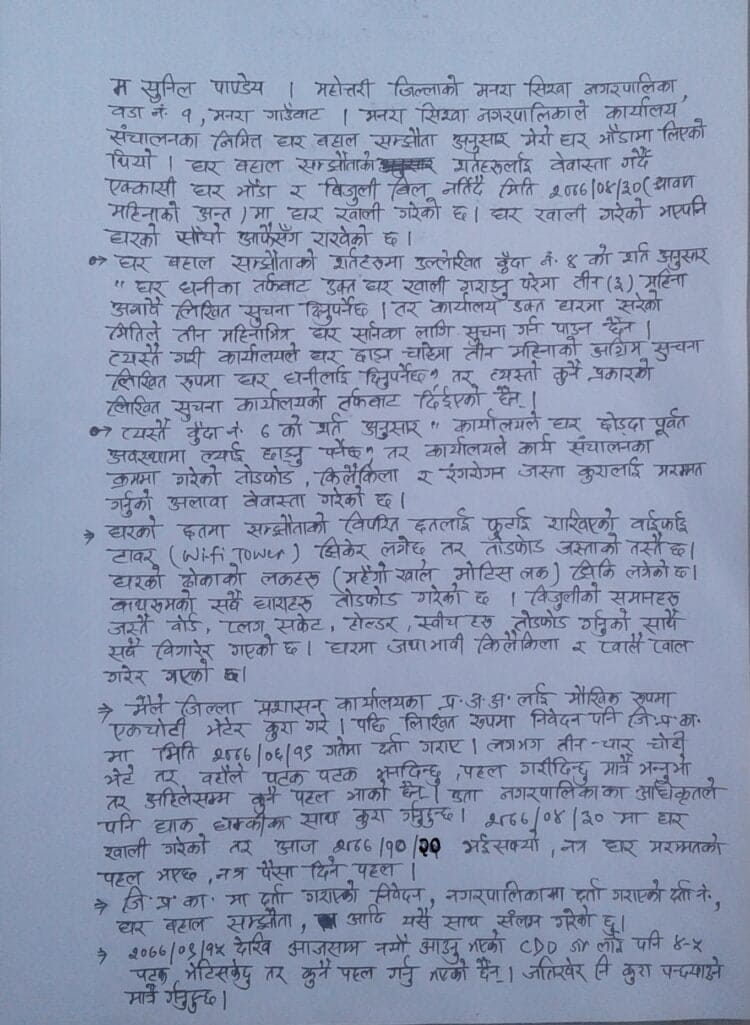 म सुनिल पाण्डेय । महोत्तरी जिल्लाको मनरा सिखा नगरपालिका,
वडा नं. १, मनरा गाउँबाट । मनरा सिखा नगरपालिकाले कार्यालय
संचालनका निमित्त घर बहाल सम्झौता अनुसार मेरो घर भाँडामा लिएको
थियो । घर बहाल सम्झौताको शर्तहरुलाई वेवास्ता गर्दै
एक्कासी घर भाँडा र बिजुली बिल नतिर्दै मिति २०७६/०४/३०(श्रावण
महिनाको अन्त)मा घर खाली गरेको छ। घर खाली गरेको भएपनि
घरको साँचो आफैसँग राखेको छ।
घर बहाल सम्झौताको शर्तहरुमा उल्लेखित बुँदा नं. ४ को शर्त अनुसार
" घर धनीका तर्फबाट उक्त घर खाली गराउनु परेमा तीन (३) महिना
अगावै लिखित सुचना दिनुपर्नेछ । तर कार्यालय उक्त घरमा सरेको
मितिले तीन महिनाभित्र घर सार्नका लागि सुचना गर्न पाउने छैन ।
त्यस्तै गरी कार्यालयले घर छाड्न चाहेमा तीन महिनाको अग्रिम सुचना
लिखित रुपमा घर धनीलाई दिनुपर्नेछ" तर त्यस्तो कुनै प्रकारको
लिखित सुचना कार्यालयको तर्फबाट दिईएको छैन् ।
त्यस्तै बुँदा नं. ६ को शर्त अनुसार " कार्यालयले घर छोड्दा पूर्वत
अवस्थामा ल्याई छाड्नु पर्नेछ" तर कार्यालयले कार्य संचालनका
क्रममा गरेको तोडफोड, किलैकिला र रंगरोगन जस्ता कुरालाई मरम्मत
गर्नुको अलावा वेवास्ता गरेको छ ।
घरको छतमा सम्झौताको विपरित छतलाई फुटाई राखिएको वाईफाई
टावर (Wi-fi TOWER) झिकेर लगेछ तर तोडफोड जस्ताको तस्तै छ।
घरको ढोकाको लकहरु (महँगो खाले मोटिस लक) झिकि लगेको छ।
बाथरुमको सबै धाराहरु तोडफोड गरेको छ । बिजुलीको समानहरु
जस्तै बोर्ड, प्लग सकेट, होल्डर, स्वीच हरु तोडफोड गर्नुको साथै
सबै बिगारेर गएको छ। घरमा जथाभावी किलैकिला र प्वालै प्वाल
गरेर गएको छ।
मैले जिल्ला प्रशासन कार्यालयका प्र.अ.अ. लाई मौखिक रुपमा
एकचोटी भेटेर कुरा गरे । पछि लिखित रुपमा निवेदन पनि जि.प्र.का.
मा मिति २०७६/०६/१९ गतेमा दर्ता गराए । लगभग तीन-चार चोटी
भेटे तर वहाँले पटक पटक भनदिन्छु, पहल गरीदिन्छु मात्रै भन्नुभो
तर अहिलेसम्म कुनै पहल भाको छैन् । उता नगरपालिकाका अधिकृतले
पनि धाक धम्कीका साथ कुरा गर्नुहुन्छ । २०७६/०४/३० मा घर
खाली गरेको तर आज २०७६/१०/२० भईसक्यो, नत्र घर मरम्मतको
पहल भएछ, नत्र पैसा दिने पहल ।
जि.प्र.का. मा दर्ता गराएको निवेदन, नगरपालिकामा दर्ता गराएको दर्ता नं.,
घर बहाल सम्झौता, आदि यसै साथ संलग्न गरेको छु।
२०७६/०९/१५ देखि आजसम्म नयाँ आउनु भएको CDO लाई पनि ४-५
पटक भेटिसकेछु तर कुनै पहल गर्नु भएको छैन् । जतिखेर नि कुरा पन्छ्याउने
मात्रै गर्नुहुन्छ ।